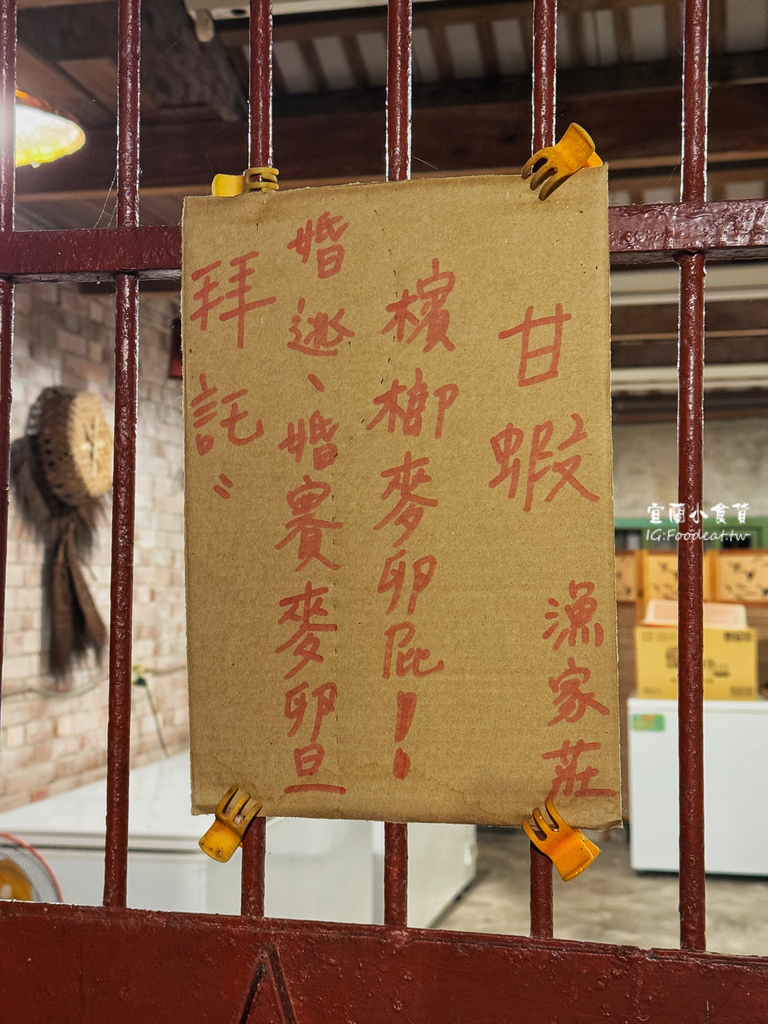 甘蝦
漁家莊
檳榔麥卵屁!!
婚逃、婚賽麥卵旦
拜託ミ
宜蘭小食貨
IG:Foodeat.tw